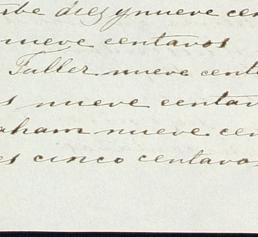 rbe diez y nueve cen
nueve centavos
Fuller nueve cent
s nueve centav
aham nueve cen
es cinco centavos